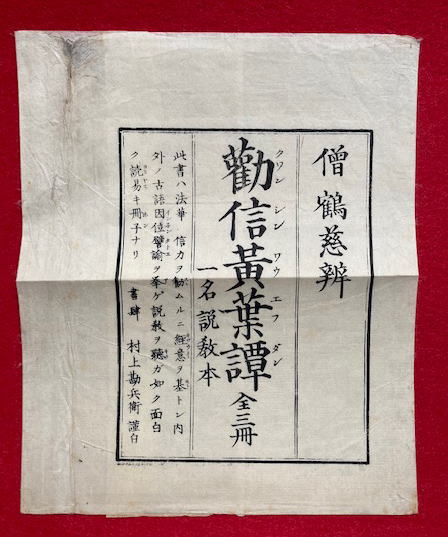 僧 鶴慈辨
勸信黃葉譚 全三冊
クワン シン ワウ エフ ダン
一名説教本
此書ハ法華 信力ヲ勧ムルニ經意ヲ基トシ内
外ノ古語因位譬諭ヲ挙ゲ説教ヲ聽ガ如ク面白
ク読易キ冊子ナリ
書肆 村上勘兵衛 謹白